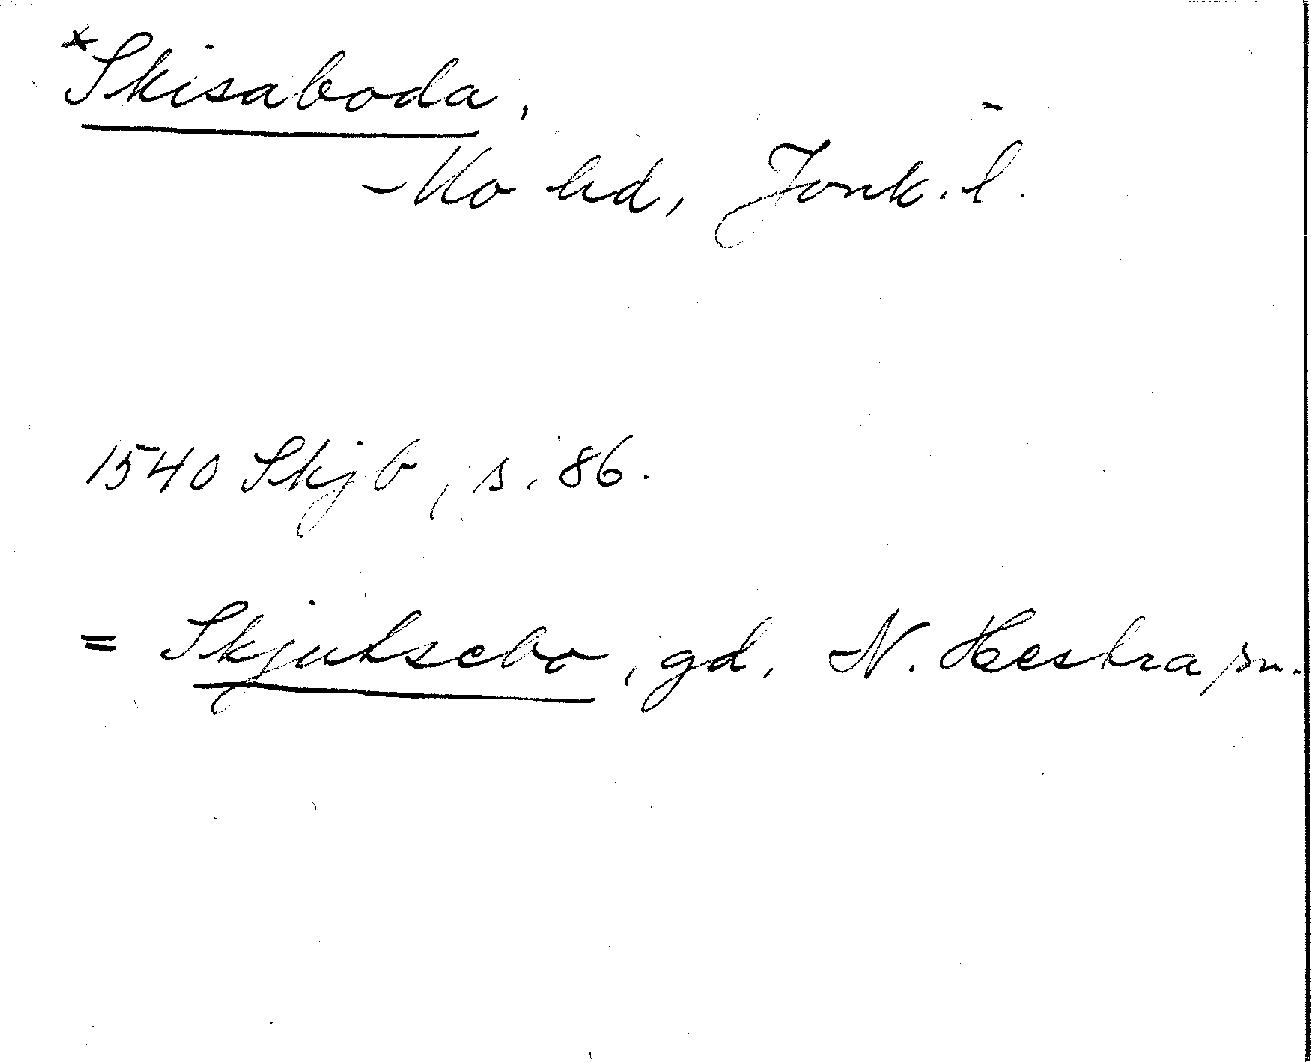 *Skisaboda,
Mo hd, Jönk. l.
1540 Skjb, s. 86.
= Skjutsebo, gd, N. Hestra sn.